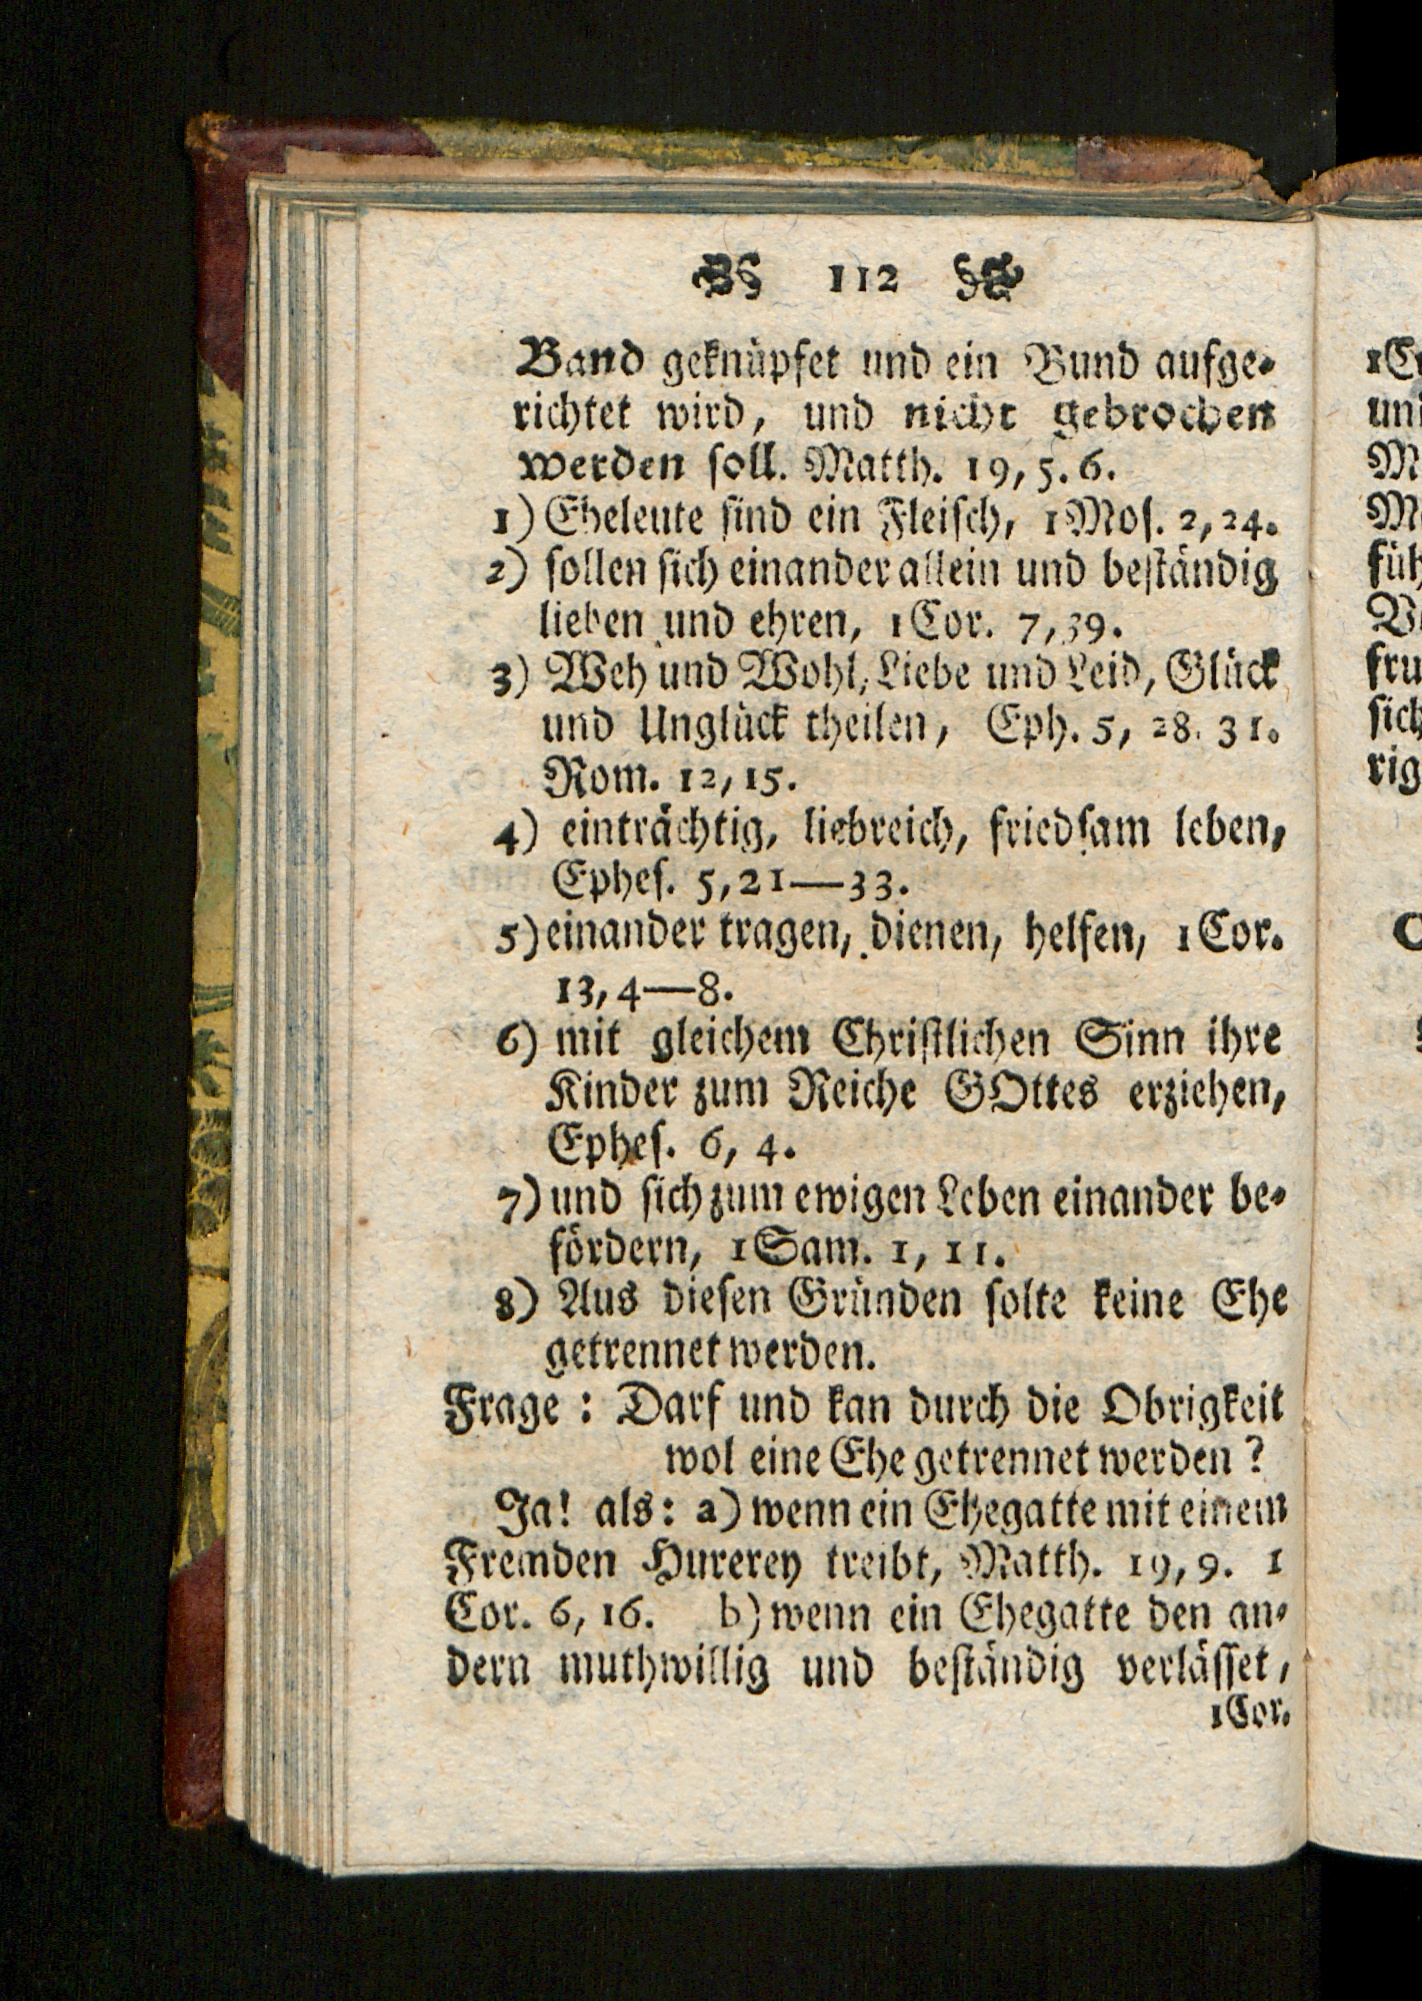 112
Band geknüpfet und ein Bund aufge-
richtet wird, und nicht gebrochen
werden soll. Matth. 19, 5. 6.
1) Eheleute sind ein Fleisch, 1 Mos. 2, 24.
2) sollen sich einander allein und beständig
lieben und ehren, 1 Cor. 7, 39.
3) Weh und Wohl, Liebe und Leid, Glück
und Unglück theilen, Eph. 5, 28. 31.
Rom. 12, 15.
4) einträchtig, liebreich, friedsam leben,
Ephes. 5, 21—33.
5) einander tragen, dienen, helfen, 1 Cor.
13, 4—8.
6) mit gleichem Christlichen Sinn ihre
Kinder zum Reiche GOttes erziehen,
Ephes. 6, 4.
7) und sich zum ewigen Leben einander be-
fördern, 1 Sam. 1, 11.
8) Aus diesen Gründen solte keine Ehe
getrennet werden.
Frage: Darf und kan durch die Obrigkeit
wol eine Ehe getrennet werden?
Ja! als: a) wenn ein Ehegatte mit einem
Fremden Hurerey treibt, Matth. 19, 9. 1
Cor. 6, 16. b) wenn ein Ehegatte den an-
dern muthwillig und beständig verlässet,
1 Cor.